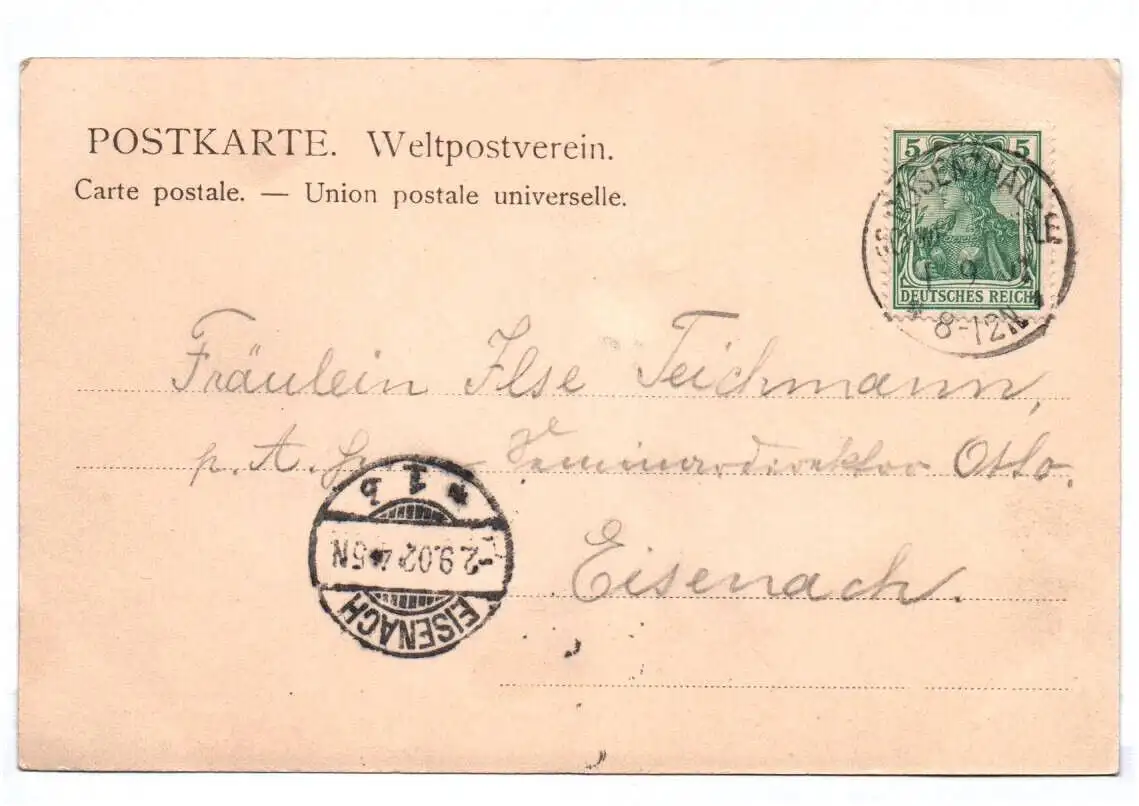 POSTKARTE. Weltpostverein.
Carte postale. — Union postale universelle.
5 5
DEUTSCHES REICH
1 9 02
* 8-12N *
Fräulein Ilse Teichmann,
p. A. Seminardirektor Otto.
Eisenach.
* 1 b
2.9.02 4-5N
EISENACH